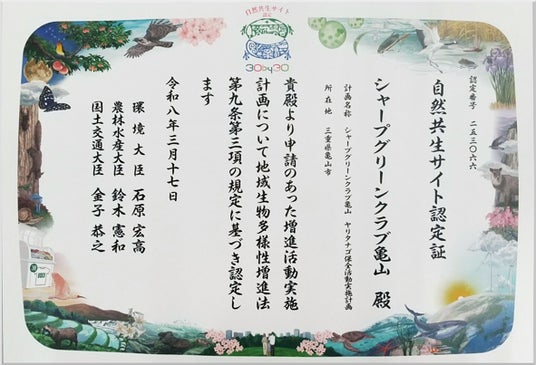 自然共生サイト
認定
30by30
認定番号 二五三〇六六
自然共生サイト認定証
シャープグリーンクラブ亀山 殿
計画名称 シャープグリーンクラブ亀山 ヤリタナゴ保全活動実施計画
所在地 三重県亀山市
貴殿より申請のあった増進活動実施
計画について地域生物多様性増進法
第九条第三項の規定に基づき認定し
ます
令和八年三月十七日
環境大臣 石原宏高
農林水産大臣 鈴木憲和
国土交通大臣 金子恭之